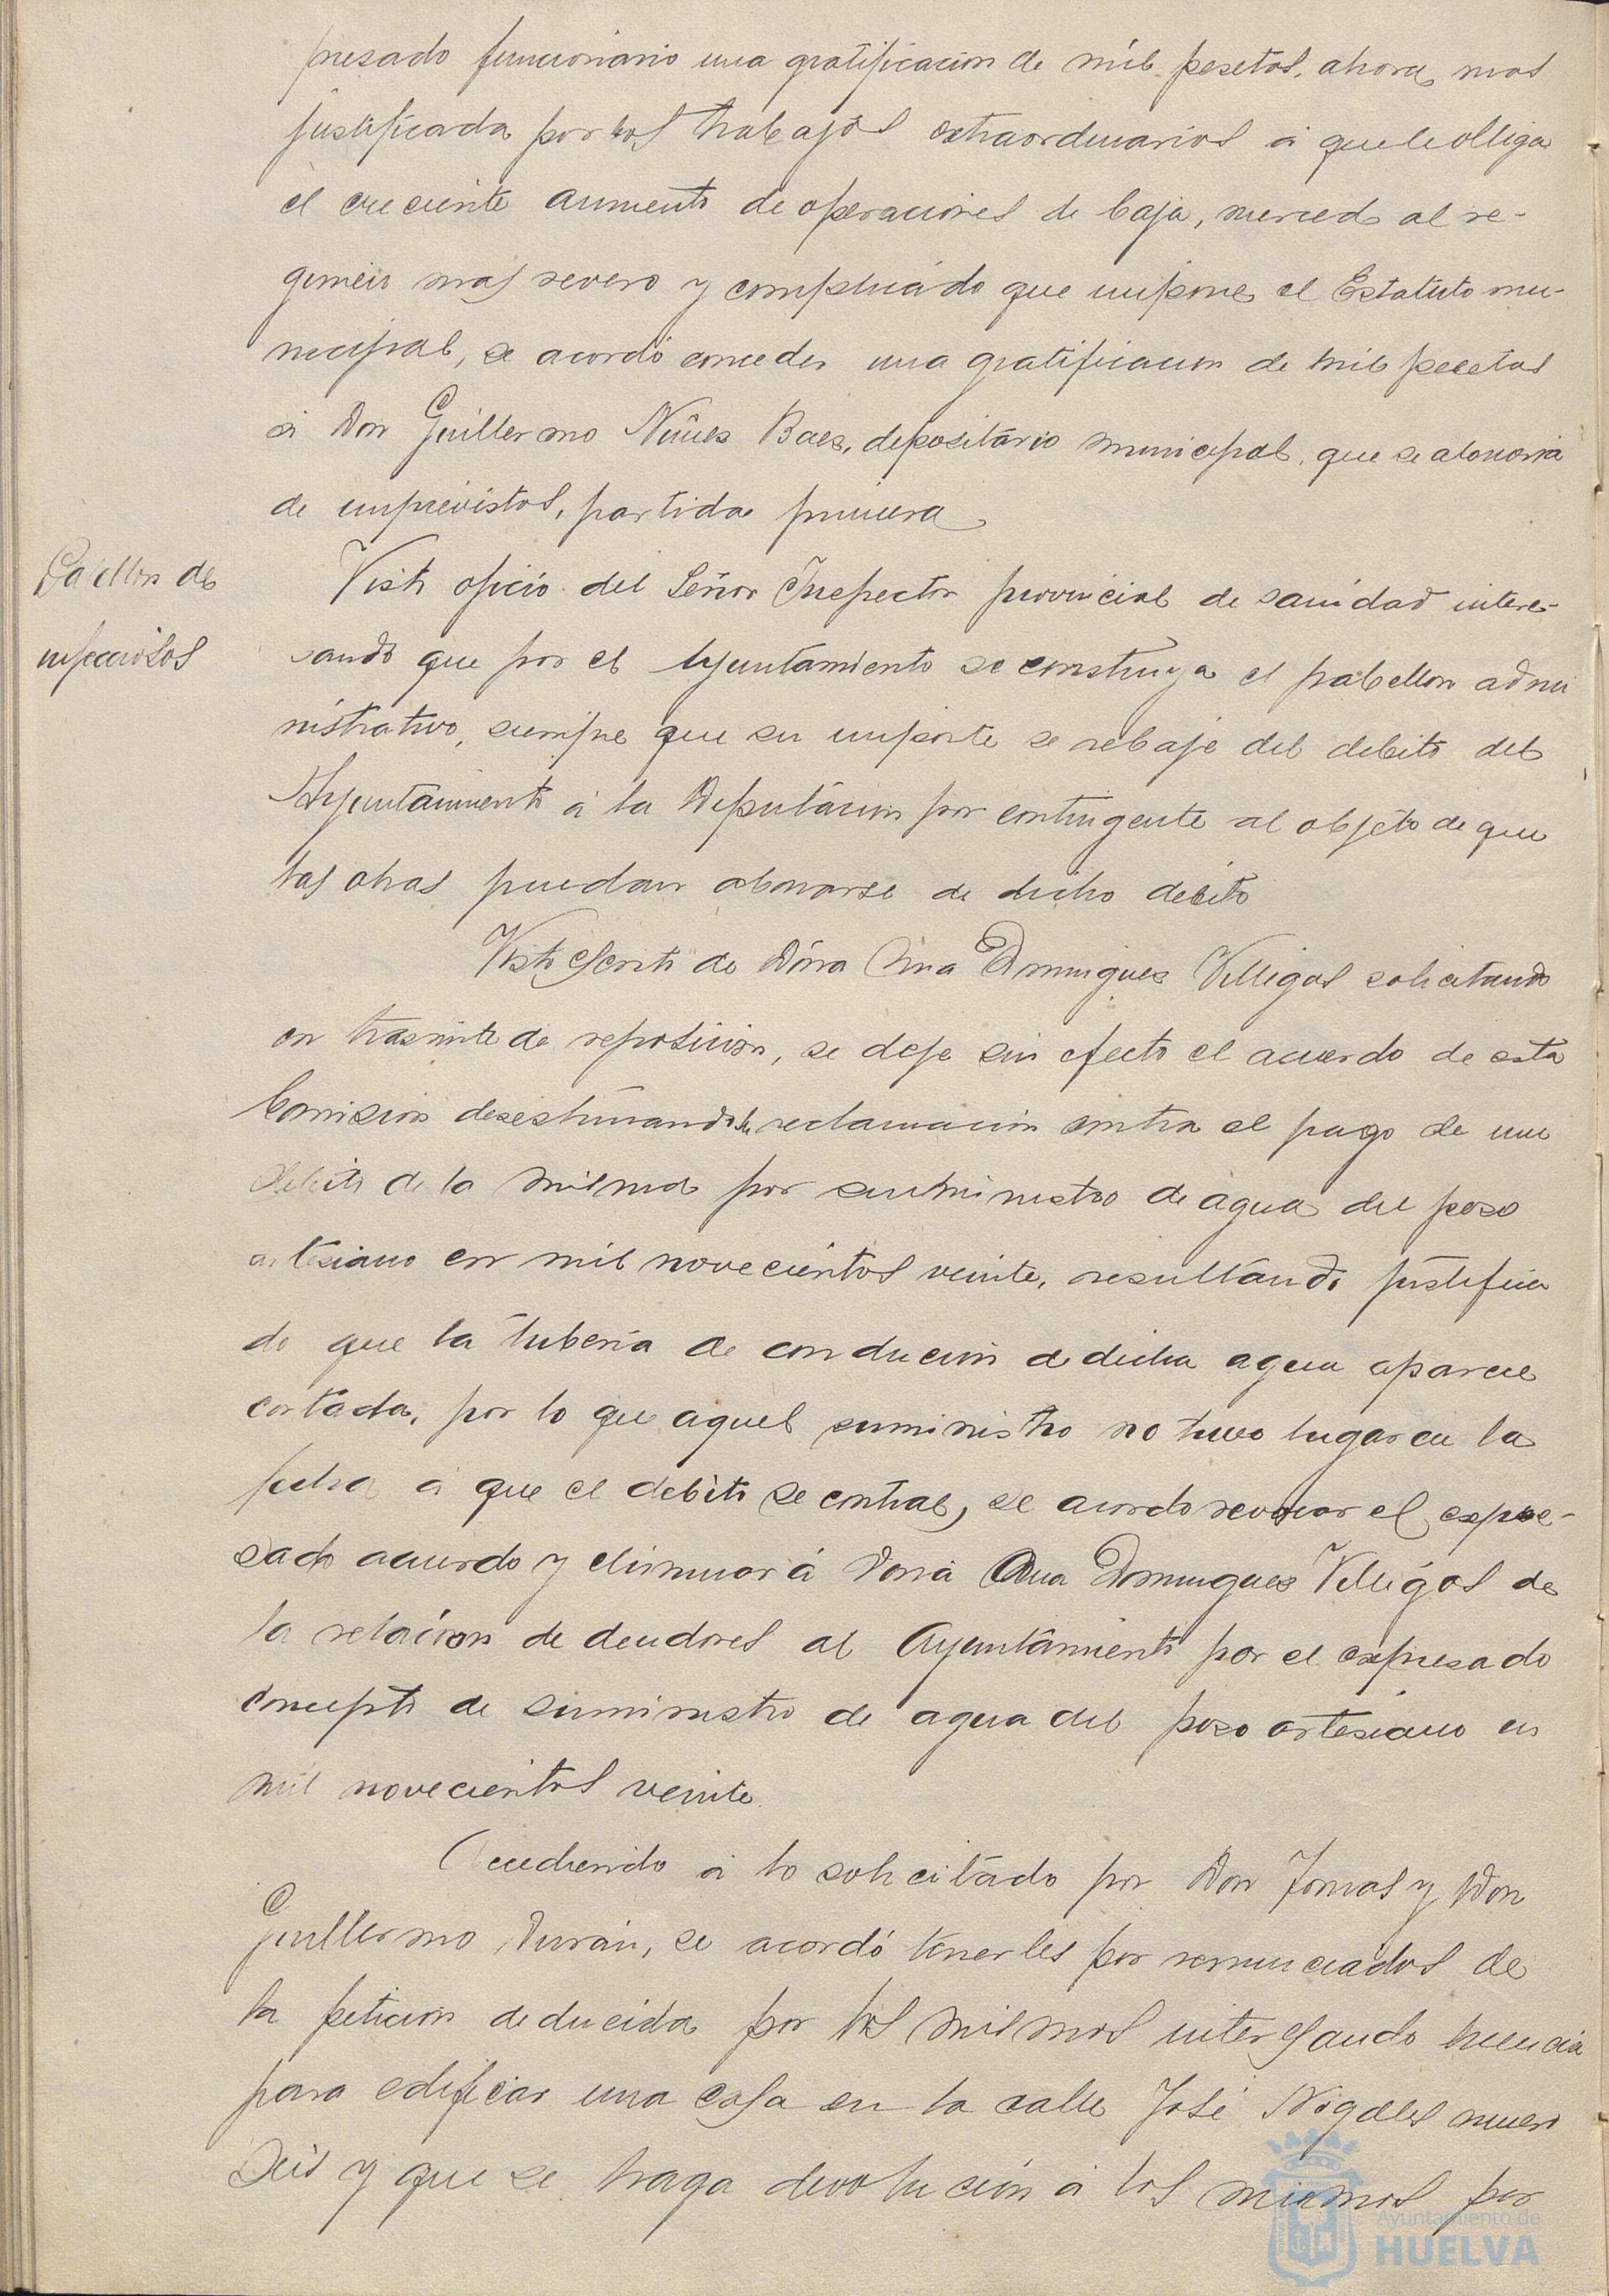 presado funcionario una gratificacion de mil pesetas, ahora mas
justificada por los trabajos extraordinarios á que le obliga
el creciente aumento de operaciones de Caja, merced al re-
gimen mas severo y complicado que impone el Estatuto mu-
nicipal, se acordó conceder una gratificacion de mil pesetas
á Don Guillermo Nuñes Baes, depositario municipal, que se abonaria
de imprevistos, partida primera
Pabellon de
infecciosos
Visto oficio del Señor Inspector provincial de sanidad intere-
sando que por el Ayuntamiento se construya el pabellon admi
nistrativo, siempre que su importe se rebaje del debito del
Ayuntamiento á la Diputacion por contingente al objeto de que
las obras puedan abonarse de dicho debito
Visto escrito de Doña Ana Domingues Villegas solicitando
en trasmite de reposicion, se deje sin efecto el acuerdo de esta
Comision desestimando su reclamacion contra el pago de un
debito de la misma por suministro de agua del poso
artesiano en mil novecientos veinte, resultando justifica
do que la tuberia de conducion de dicha agua aparece
cortada, por lo que aquel suministro no tuvo lugar en la
fecha á que el debito se contrae, se acordo revocar el expre-
sado acuerdo y eliminar á Doña Ana Domingues Villegas de
la relacion de deudores al Ayuntamiento por el expresado
concepto de suministro de agua del poso artesiano en
mil novecientos veinte.
Accediendo á lo solicitado por Don Tomas y Don
Guillermo Duran, se acordó tenerles por renunciados de
la peticion deducida por los mismos interesando licencia
para edificar una casa en la calle José Nogales numero
Seis y que se haga devolucion á los mismos por
Ayuntamiento de
HUELVA